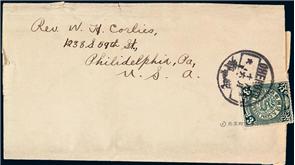 Rev. W. H. Corlies,
1238 S 59th St,
Philidelphia, Pa,
U. S. A.